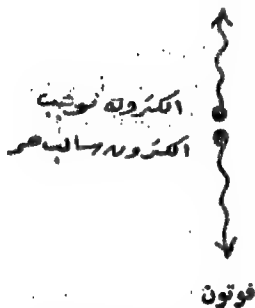 الكترون موجب
الكترون سالب حر
فوتون